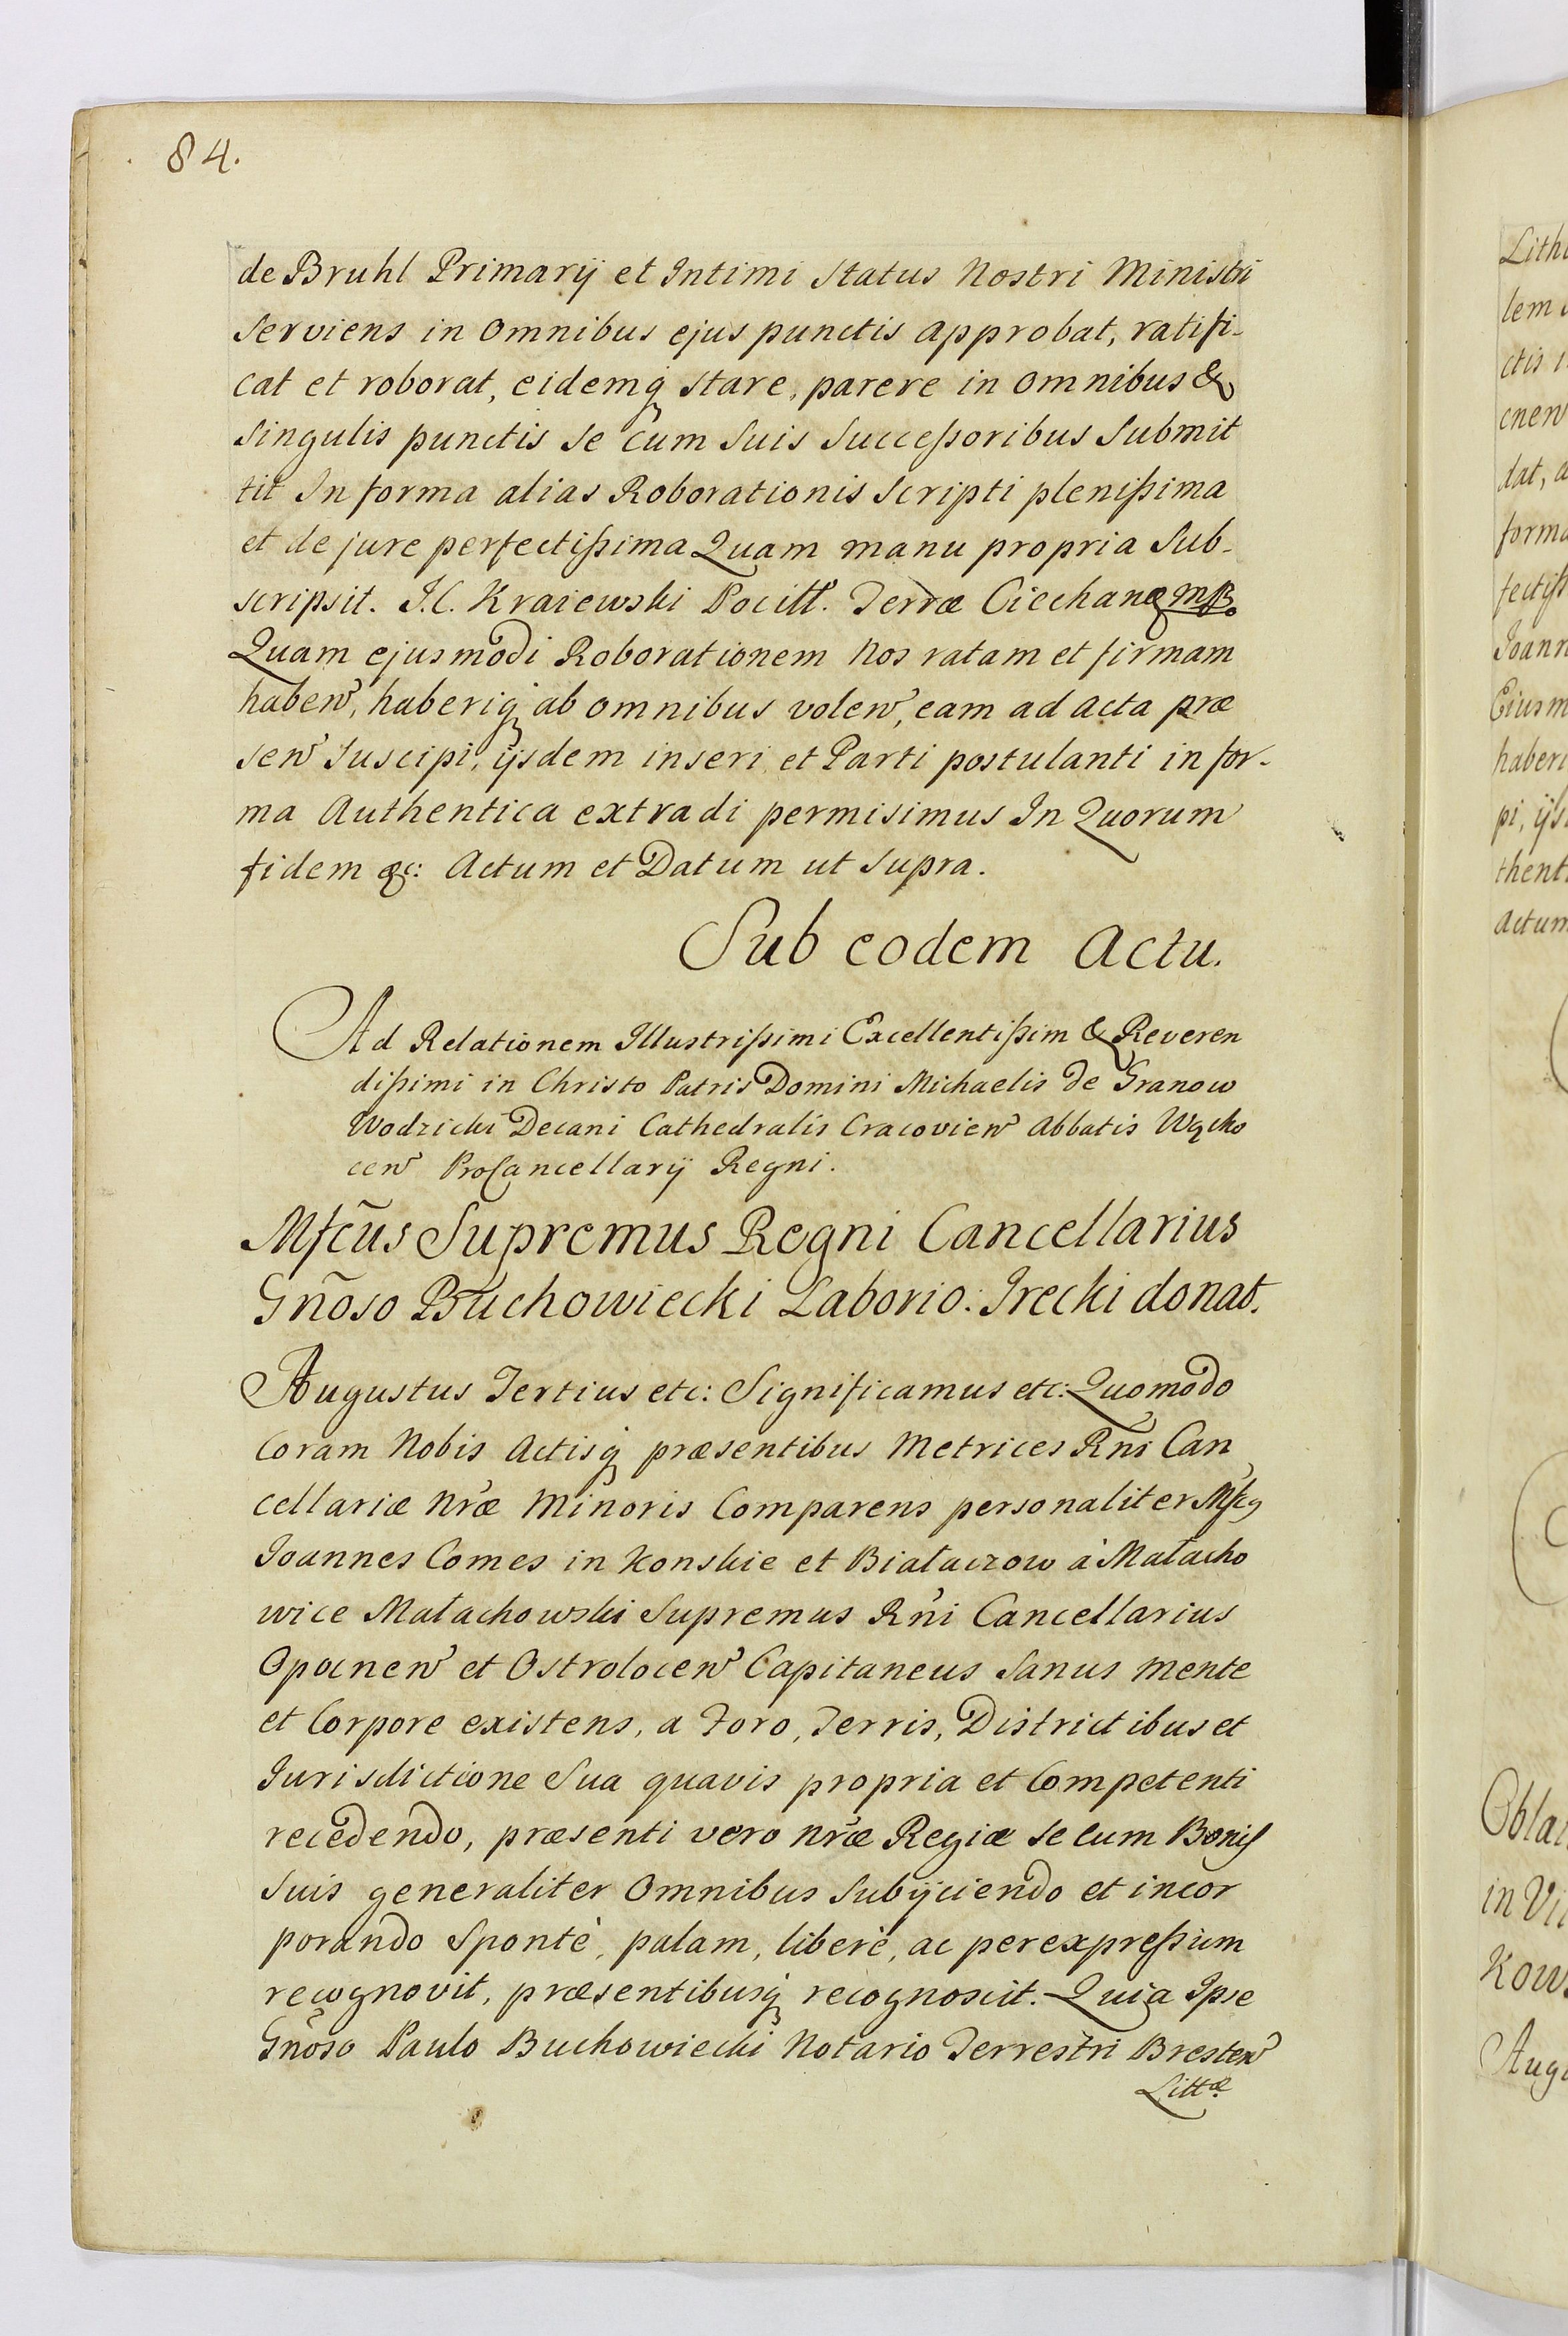 84.
de Bruhl Primarÿ et Intimi Status Nostri Ministri
Serviens in omnibus ejus punctis approbat, ratifi-
cat et roborat, eidemq stare, parere in omnibus &
singulis punctis se cum suis Succeßoribus Submit
tit In forma alias Roborationis Scripti plenißima
et de jure perfectißima Quam manu propria Sub-
scripsit. J.C. Kraiewski Pocill. Terræ Ciechan mp.
Quam ejusmodi Roborationem Nos ratam et firmam
haben, haberiq ab omnibus volen, eam ad acta præ
sen Suscipi, ijsdem inseri et Parti postulanti in for-
ma Authentica extradi permisimus In Quorum
fidem &c: Actum et Datum ut Supra.
Sub eodem Actu.
Ad Relationem Illustrißimi Excellentißim & Reveren
dißimi in Christo Patris Domini Michaelis de Granow
Wodzicki Decani Cathedralis Cracovien Abbatis Wącho
cen ProCancellarÿ Regni.
Mfcūs Supremus Regni Cancellarius
Gn̄oso Buchowiecki Laborio: Irecki donat.
Augustus Tertius etc: Significamus etc: Quomodo
Coram Nobis Actisq præsentibus Metrices Rni Can
cellariæ Nræ Minoris Comparens personaliter Mfcg
Joannes Comes in Konskie et Białaczow à Małacho
wice Małachowski Supremus Rni Cancellarius
Opocnen et Ostrolocen Capitaneus Sanus mente
et Corpore existens, a Foro, Terris, Districtibus et
Jurisdictione Sua quavis propria et Competenti
recedendo, præsenti vero Nræ Regiæ se cum Bonis
suis generaliter omnibus Subÿciendo et incor
porando Spontè, palam, liberè, ac per expreßum
recognovit, præsentibusq recognoscit. Quia Ipse
Gnoso Paulo Buchowiecki Notario Terrestri Bresten
Littæ
Lith
lem
ctis
cnen
dat, a
forma
fectiß
Joann
Eiusm
haberi
pi, ijs
thent
Actum
Obla
in Vi
Kows
Augu